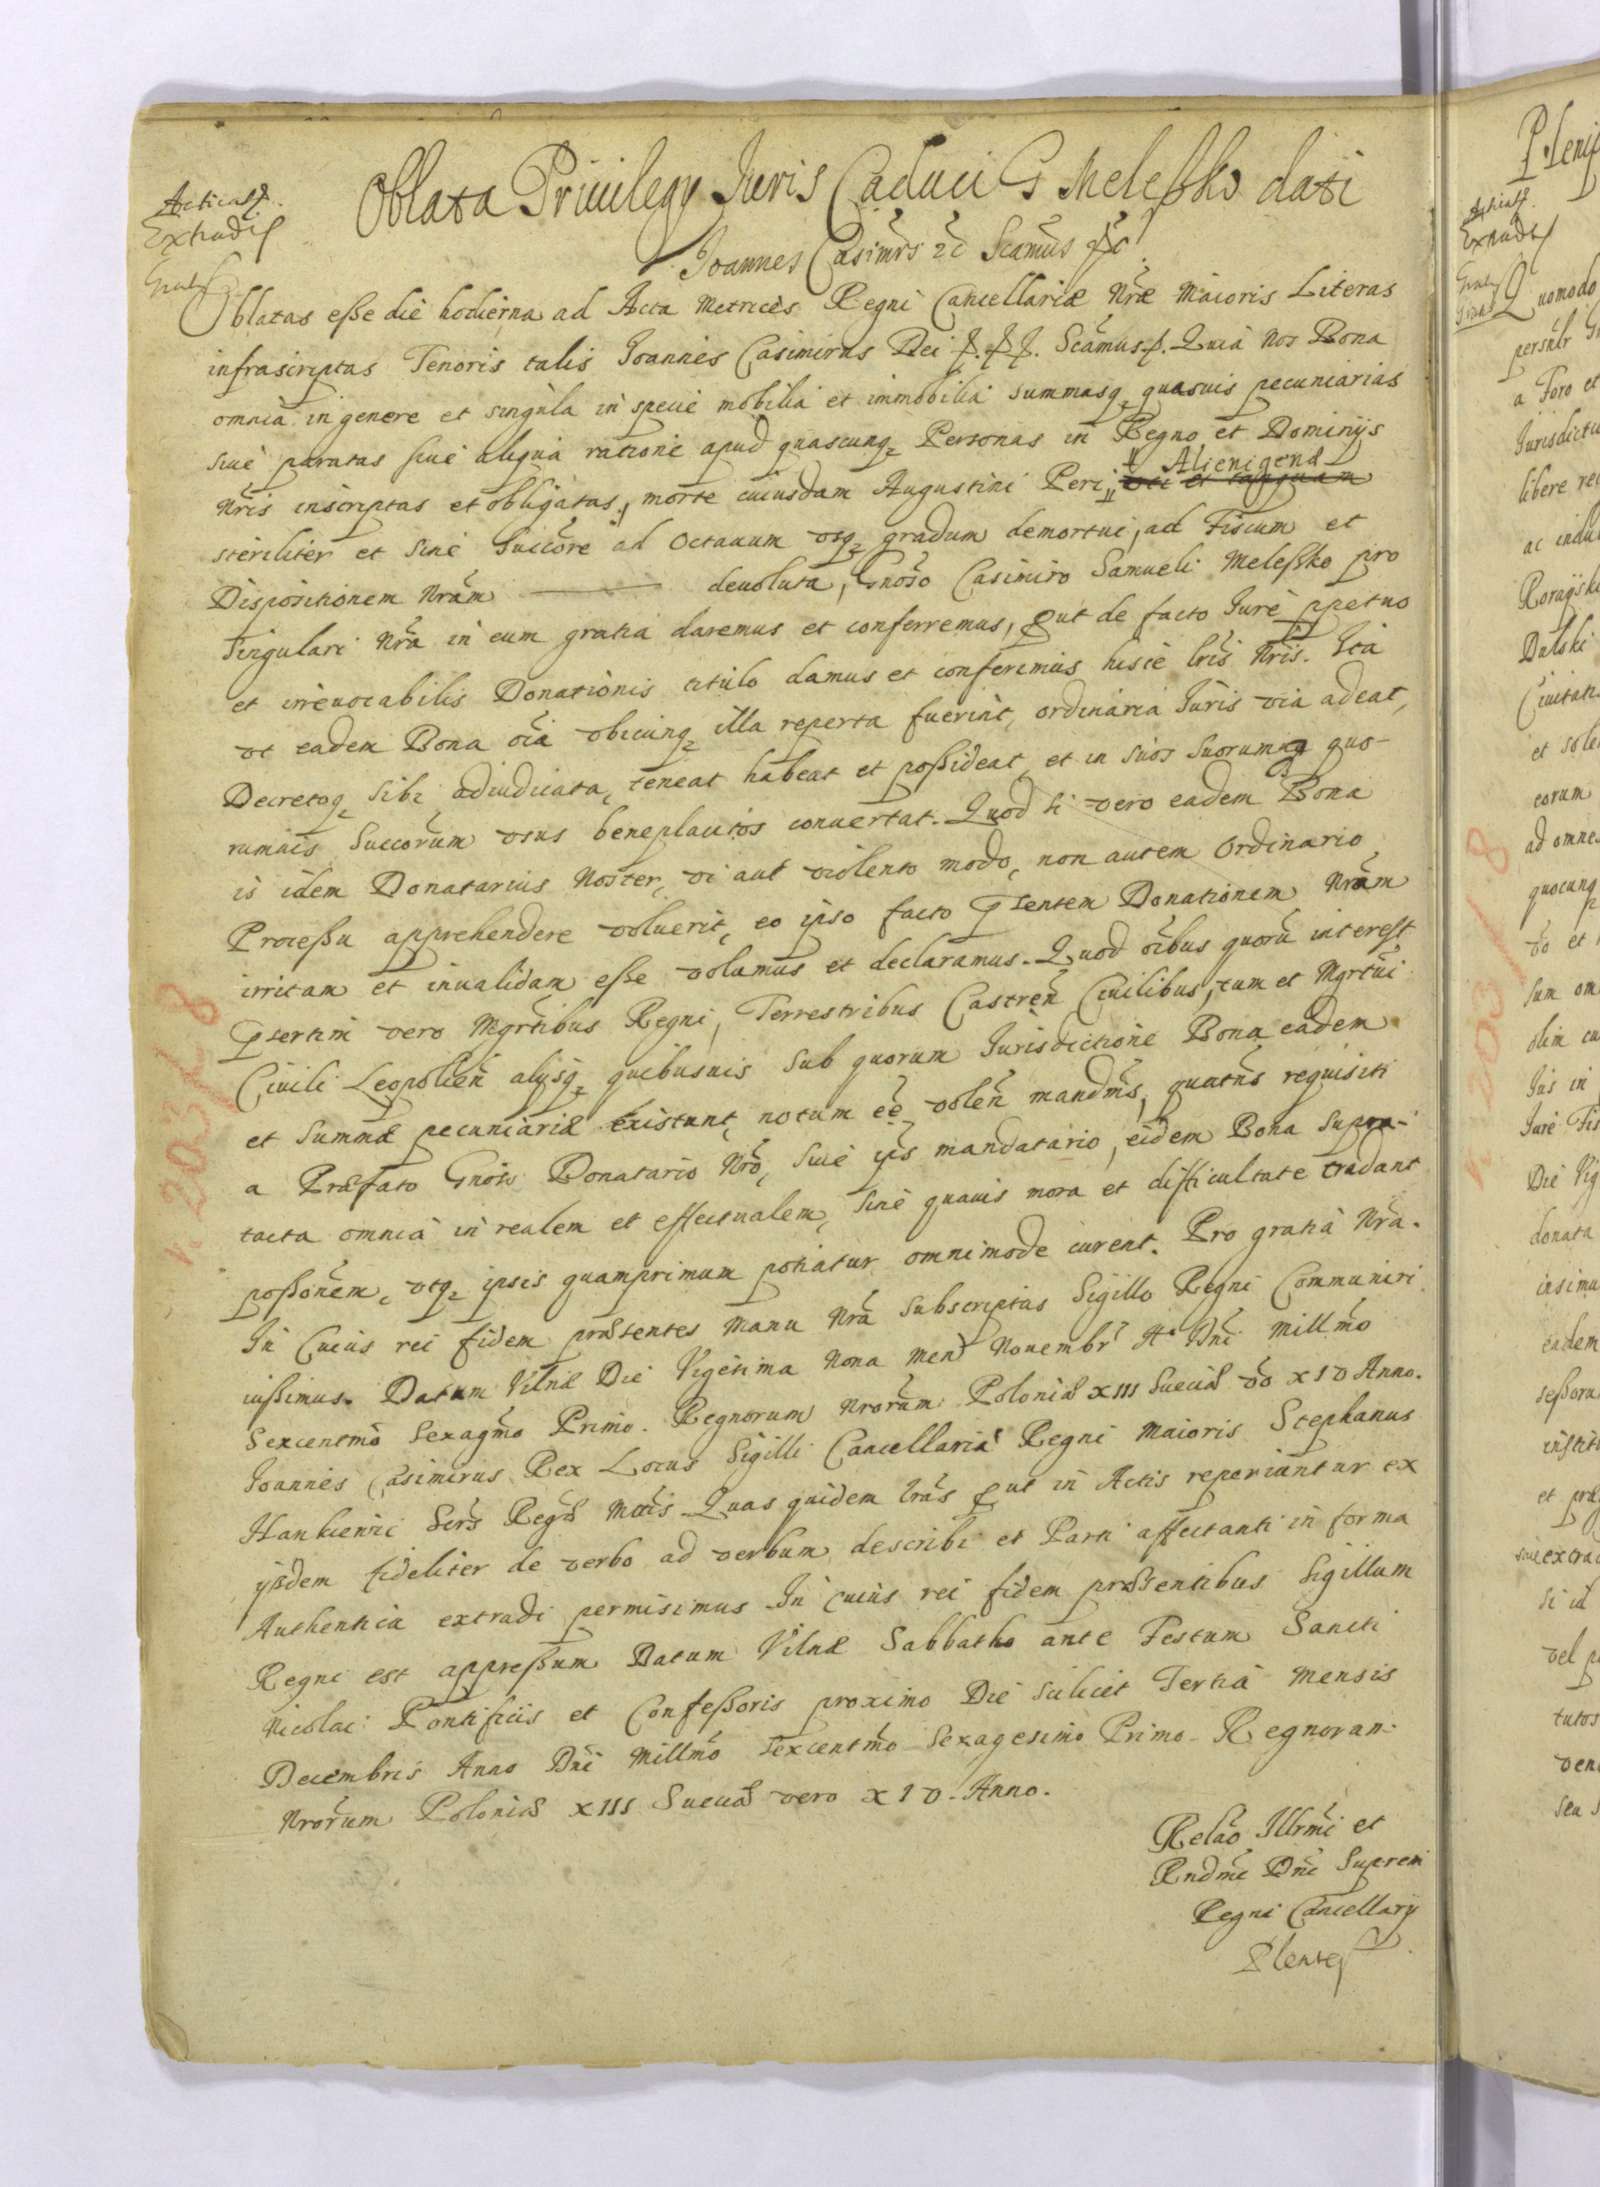 Oblata Priuilegy Iuris Caduci G Meleßko dati
Acticat
Extradit
Gratis
Joannes Casimrs &c Scamus &c
Oblatas eße die hodierna ad Acta Metrices Regni Cancellariæ Nræ Maioris Literas
infrascriptas Tenoris talis Joannes Casimirus Dei Scamus. Quia Nos Bona
omnia in genere et singula in specie mobilia et immobilia summasq quasuis pecuniarias
siue paratas siue aliqua ratione apud quascunq Personas in Regno et Dominijs
Nris inscriptas et obligatas, morte cuiusdam Augustini Peri Alienigenæ
steriliter et sine Succore ad Octauum vsq gradum demortui, ad Fiscum et
Dispositionem Nram devoluta, Gnoso Casimiro Samueli Meleßko pro
singulari Nra in eum gratia daremus et conferremus, put de facto Iure ppetuo
et irreuocabilis Donationis titulo damus et conferimus hisce lris Nris. Ita
vt eadem Bona oia vbicunq illa reperta fuerint, ordinaria Iuris via adeat,
Decretoq sibi adiudicata, teneat habeat et poßideat et in suos suorumq quo-
rumuis Succorum vsus beneplacitos conuertat. Quod si vero eadem Bona
is idem Donatarius Noster, vi aut violento modo, non autem Ordinario
Proceßu apprehendere voluerit, eo ipso facto psentem Donationem Nram
irritam et inualidam eße volumus et declaramus. Quod oibus quoru interest
psertim vero Mgrtibus Regni, Terrestribus Castren Ciuilibus, tum et Mgrtui
Ciuili Leopolien alysq quibusuis sub quorum Iurisdictione Bona eadem
et Summæ pecuniariæ existunt, notum ee volen mandms, quatns requisiti
a Præfato Gnoso Donatario Nro, siue ips mandatario, eidem Bona supra-
tacta omnia in realem et effectualem, sine quauis mora et difficultate tradant
poßonem, vtq ipsis quamprimum potiatur omnimode curent. Pro gratia Nra.
In Cuius rei fidem præsentes Manu Nra subscriptas Sigillo Regni Communiri
iußimus. Datum Vilnæ Die Vigesima Nona Men Nouembr Ao Dni Millmo
Sexcentmo Sexagmo Primo. Regnorum Nrorum Poloniæ XIII Sueciæ vo XIV Anno.
Joannes Casimirus Rex Locus Sigilli Cancellariæ Regni Maioris Stephanus
Hankiewic Sers Regæ Mttis Quas quidem lras put in Actis reperiantur ex
ijsdem fideliter de verbo ad verbum describi et Parti affectanti in forma
Authentica extradi permisimus In cuius rei fidem præsentibus Sigillum
Regni est appreßum Datum Vilnæ Sabbatho ante Festum Sancti
Nicolai Pontificis et Confeßoris proximo Die scilicet Tertia Mensis
Decembris Anno Dni Millmo Sexcentmo Sexagesimo Primo Regnoran.
Nrorum Poloniæ XIII Sueciæ vero XIV Anno.
Relao Illrmi et
Rndmi Dni Supremi
Regni Cancellary